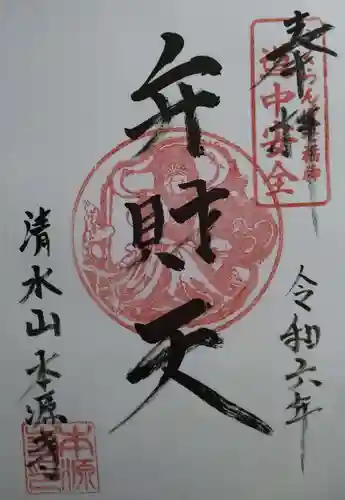 奉拝
道中安全
弁財天
令和六年
清水山本源寺
本源